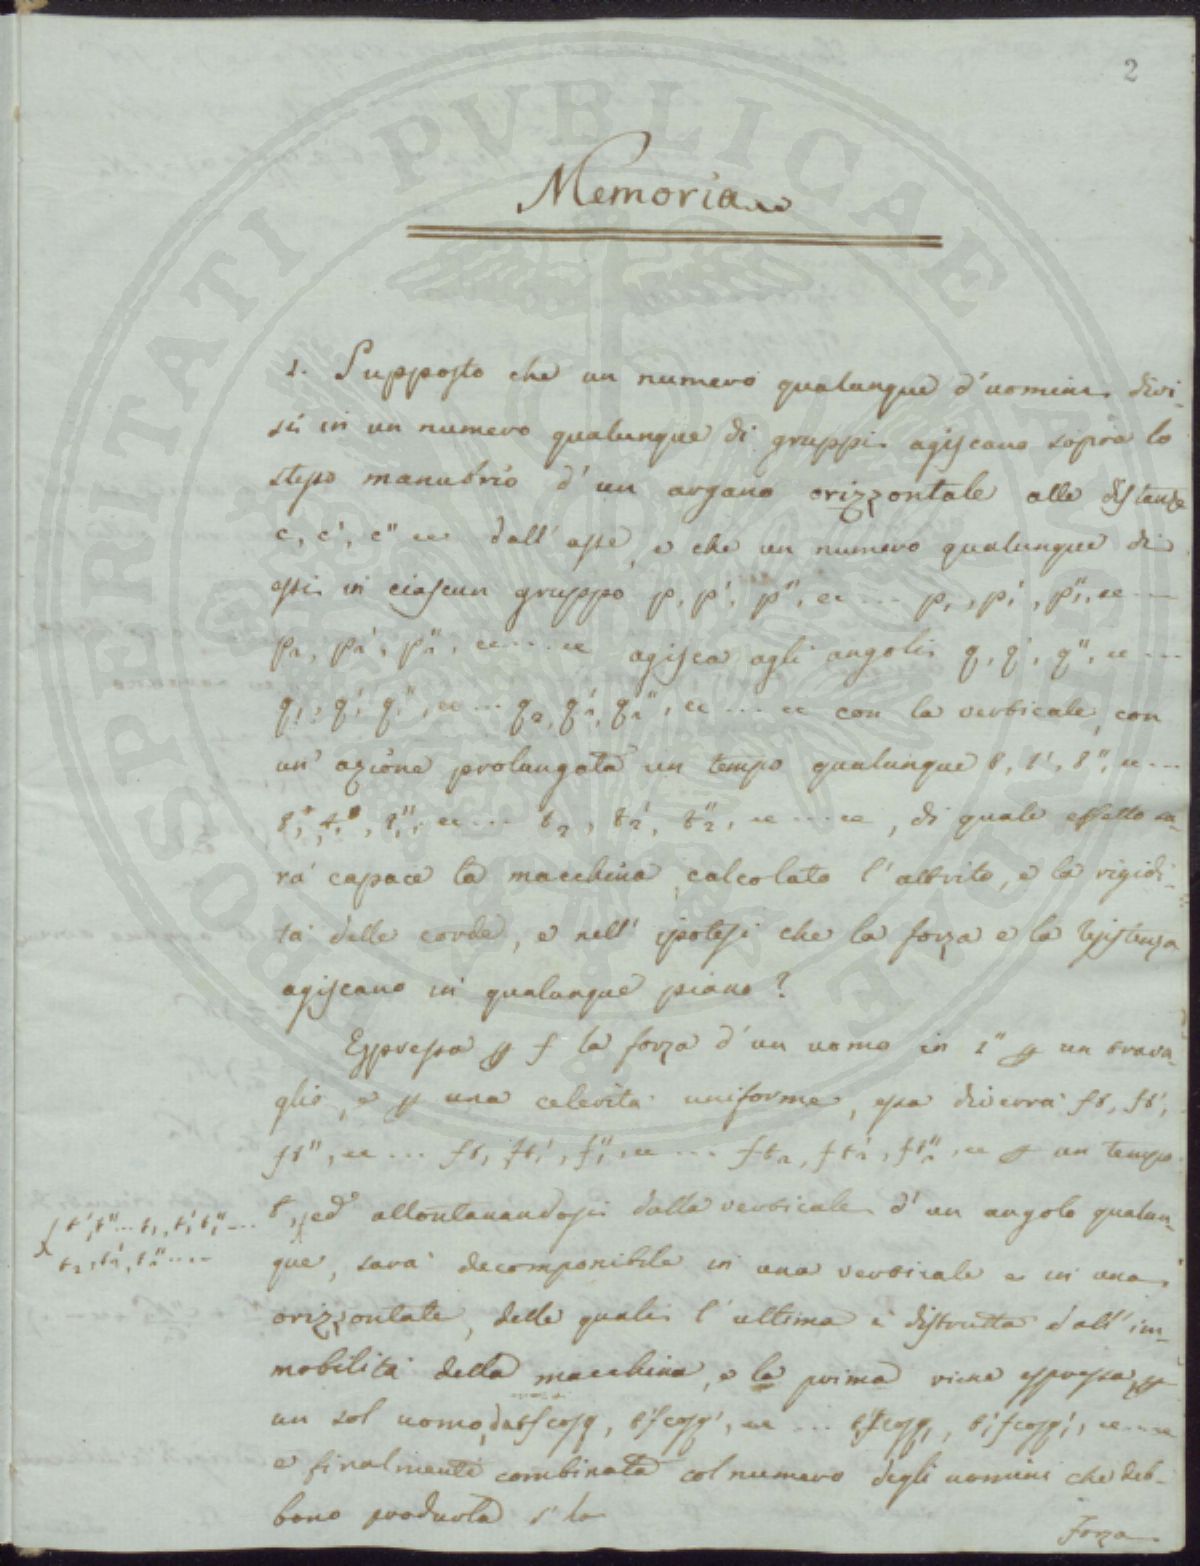 2
Memoria
1. Supposto che un numero qualunque d'uomini divi-
si in un numero qualunque di gruppi agiscano sopra lo
stesso manubrio d'un argano orizzontale alle distanze
c, c', c'' ec dall'asse, e che un numero qualunque di
essi in ciascun gruppo p, p', p'', ec .... p₁, p₁', p₁'', ec ....
p₂, p₂', p₂'', ec .... ec agisca agli angoli q, q', q'', ec ....
q₁, q₁', q₁'', ec ... q₂, q₂', q₂'', ec .... ec con la verticale, con
un'azione prolungata un tempo qualunque t, t', t'', ec ....
t₁'', ec .... t₂, t₂', t₂'', ec .... ec, di quale effetto sa-
rà capace la macchina, calcolato l'attrito, e la rigidi-
tà delle corde, e nell'ipotesi che la forza e la resistenza
agiscano in qualunque piano?
Espressa p f la forza d'un uomo in 1'' p un trava-
glio, e p una celerità uniforme, essa diverrà ft, ft',
ft'', ec .... ft₁, ft₁', f₁'', ec .... ft₂, ft₂', ft₂'', ec p un tempo
t, ed allontanandosi dalla verticale d'un angolo qualun-
t', t'' ... t₁, t₁', t₁'', ....
t₂, t₂', t₂'' ....
que, sarà decomponibile in una verticale e in una
orizzontale, delle quali l'ultima è distrutta dall'im-
mobilità della macchina, e la prima viene espressa p
un sol uomo, da tfcosq, t'fcosq', ec .... t₁fcosq₁, t₁'fcosq₁', ec .... ec
e finalmente combinata col numero degli uomini che deb-
bono produrla
Forza
PROSPERITATI PVBLICAE